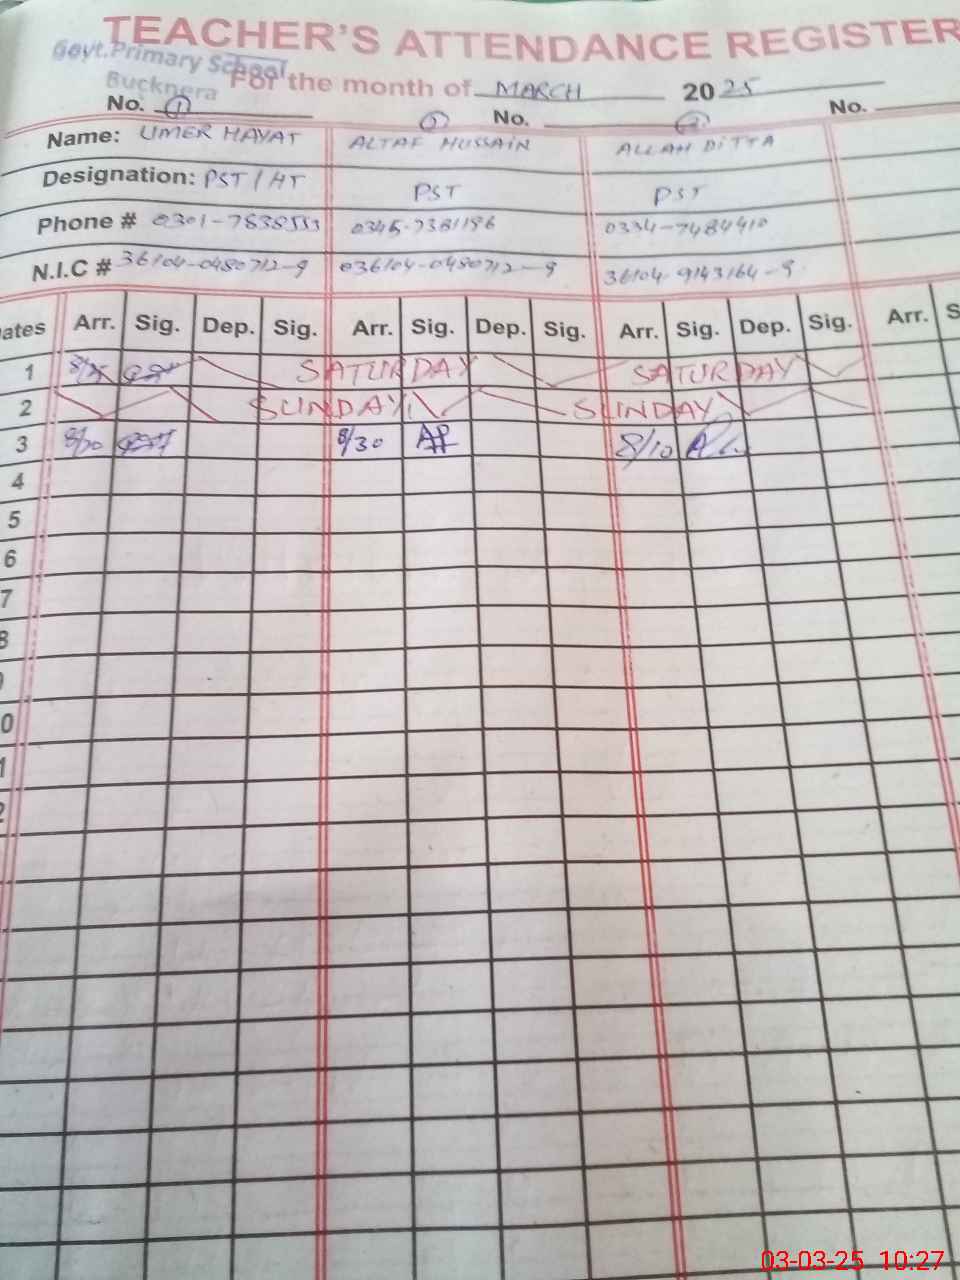 TEACHER'S ATTENDANCE REGISTER
Govt. Primary School
Bucknera
For the month of MARCH 2025
No. 1 No. No.
Name: UMER HAYAT ALTAF HUSSAIN ALLAH DITTA
Designation: PST / HT PST PST
Phone # 0301-7838553 0345-7381196 0334-7484410
N.I.C # 36104-0480712-9 036104-0480712-9 36104-9143164-9
ates Arr. Sig. Dep. Sig. Arr. Sig. Dep. Sig. Arr. Sig. Dep. Sig. Arr. S
1 SATURDAY SATURDAY
2 SUNDAY SUNDAY
3 8/30 8/30 8/10
4
5
6
7
8
0
1
2
03-03-25 10:27